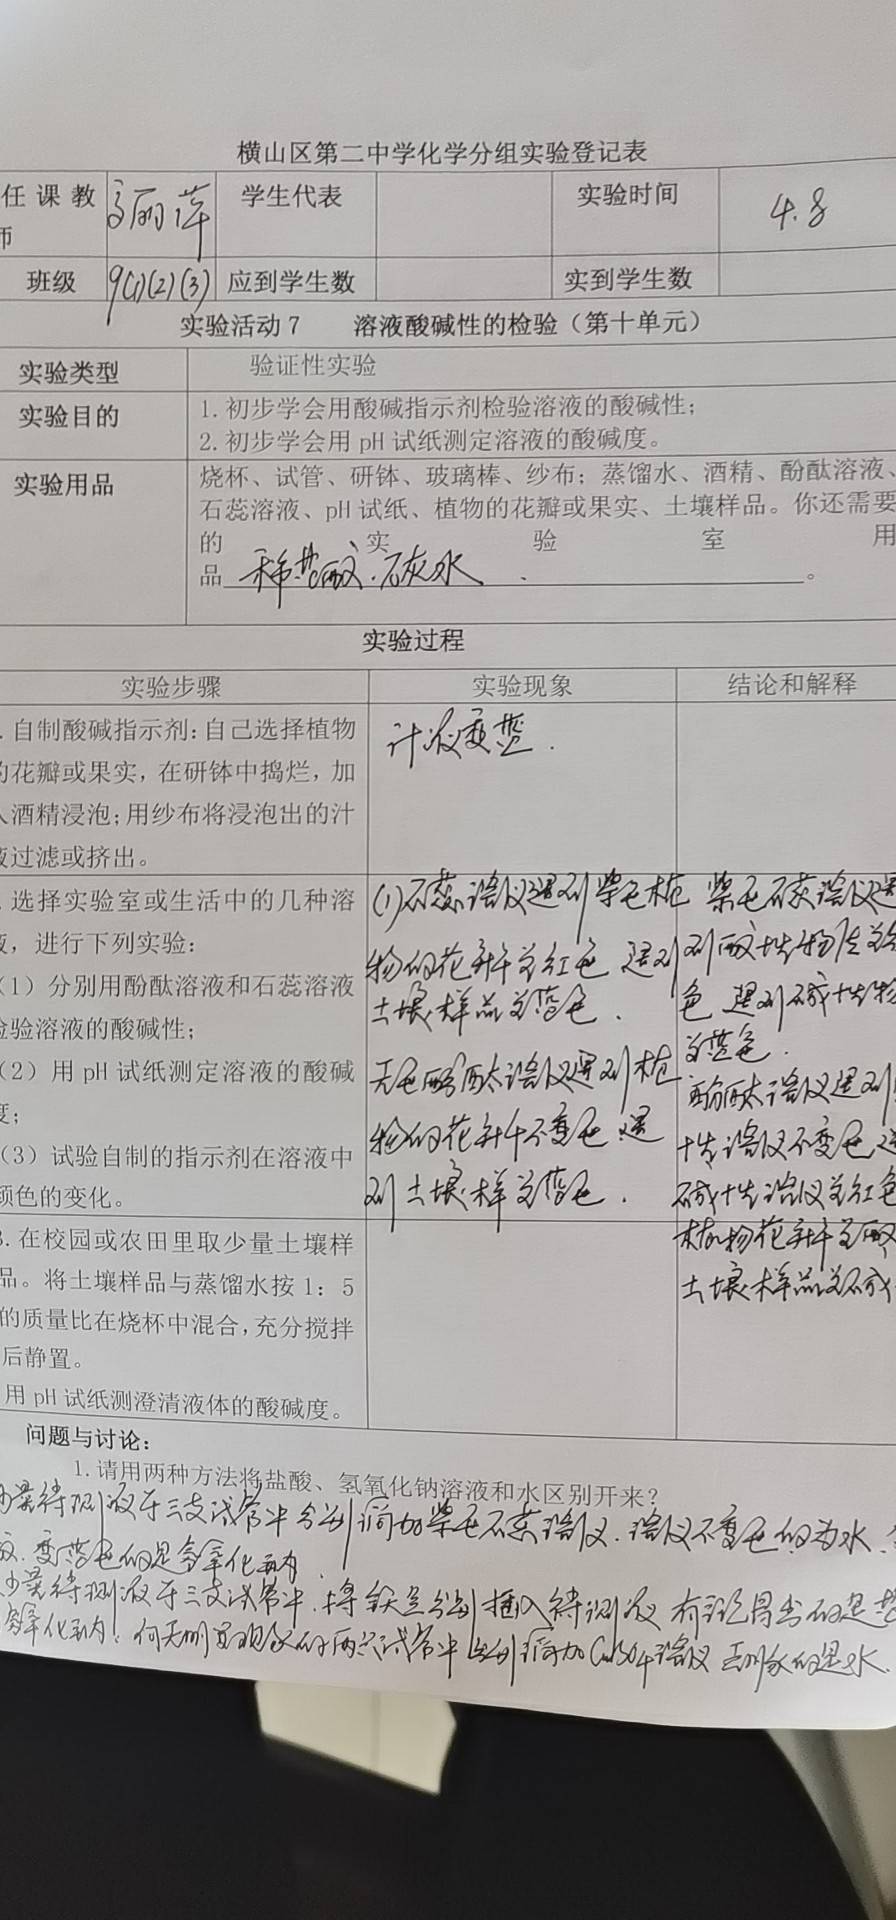 横山区第二中学化学分组实验登记表
任课教师 高丽萍 学生代表 实验时间 4.8
班级 9(1)(2)(3) 应到学生数 实到学生数
实验活动7 溶液酸碱性的检验（第十单元）
实验类型 验证性实验
实验目的 1.初步学会用酸碱指示剂检验溶液的酸碱性；
2.初步学会用 pH 试纸测定溶液的酸碱度。
实验用品 烧杯、试管、研钵、玻璃棒、纱布；蒸馏水、酒精、酚酞溶液、
石蕊溶液、pH 试纸、植物的花瓣或果实、土壤样品。你还需要
的 实 验 室 用
品 稀盐酸.石灰水 。
实验过程
实验步骤 实验现象 结论和解释
.自制酸碱指示剂：自己选择植物
的花瓣或果实，在研钵中捣烂，加
入酒精浸泡；用纱布将浸泡出的汁
液过滤或挤出。
汁液变蓝.
.选择实验室或生活中的几种溶
液，进行下列实验：
（1）分别用酚酞溶液和石蕊溶液
检验溶液的酸碱性；
（2）用 pH 试纸测定溶液的酸碱
度；
（3）试验自制的指示剂在溶液中
颜色的变化。
(1)石蕊溶液遇到紫色植
物的花瓣变红色 遇到
土壤样品变蓝色.
无色酚酞溶液遇到植
物的花瓣不变色 遇
到土壤样变蓝色.
紫色石蕊溶液遇
到酸性物质变红
色 遇到碱性物
变蓝色.
酚酞溶液遇到
性溶液不变色 遇
碱性溶液变红色
植物花瓣呈酸
土壤样品呈碱
3.在校园或农田里取少量土壤样
品。将土壤样品与蒸馏水按 1：5
的质量比在烧杯中混合，充分搅拌
后静置。
用 pH 试纸测澄清液体的酸碱度。
问题与讨论：
1.请用两种方法将盐酸、氢氧化钠溶液和水区别开来？
少量待测液于三支试管中 分别滴加紫色石蕊溶液.溶液不变色的为水
变蓝色的是氢氧化钠
少量待测液于三支试管中.将铁丝分别插入待测液 有气泡冒出的是盐
氢氧化钠. 向无明显现象的两只试管中分别滴加CuSO4溶液 无现象的是水.